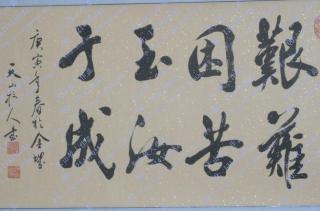 艱難
困苦
玉汝
于成
庚寅年春於金
天山人書